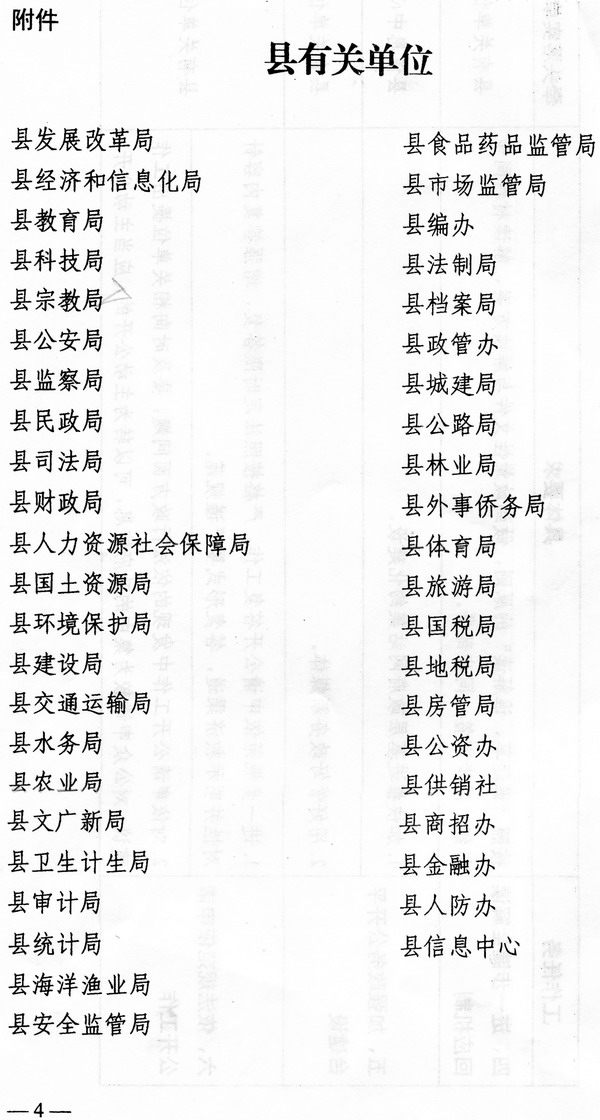 附件
县有关单位
县发展改革局
县经济和信息化局
县教育局
县科技局
县宗教局
县公安局
县监察局
县民政局
县司法局
县财政局
县人力资源社会保障局
县国土资源局
县环境保护局
县建设局
县交通运输局
县水务局
县农业局
县文广新局
县卫生计生局
县审计局
县统计局
县海洋渔业局
县安全监管局
县食品药品监管局
县市场监管局
县编办
县法制局
县档案局
县政管办
县城建局
县公路局
县林业局
县外事侨务局
县体育局
县旅游局
县国税局
县地税局
县房管局
县公资办
县供销社
县商招办
县金融办
县人防办
县信息中心
—4—